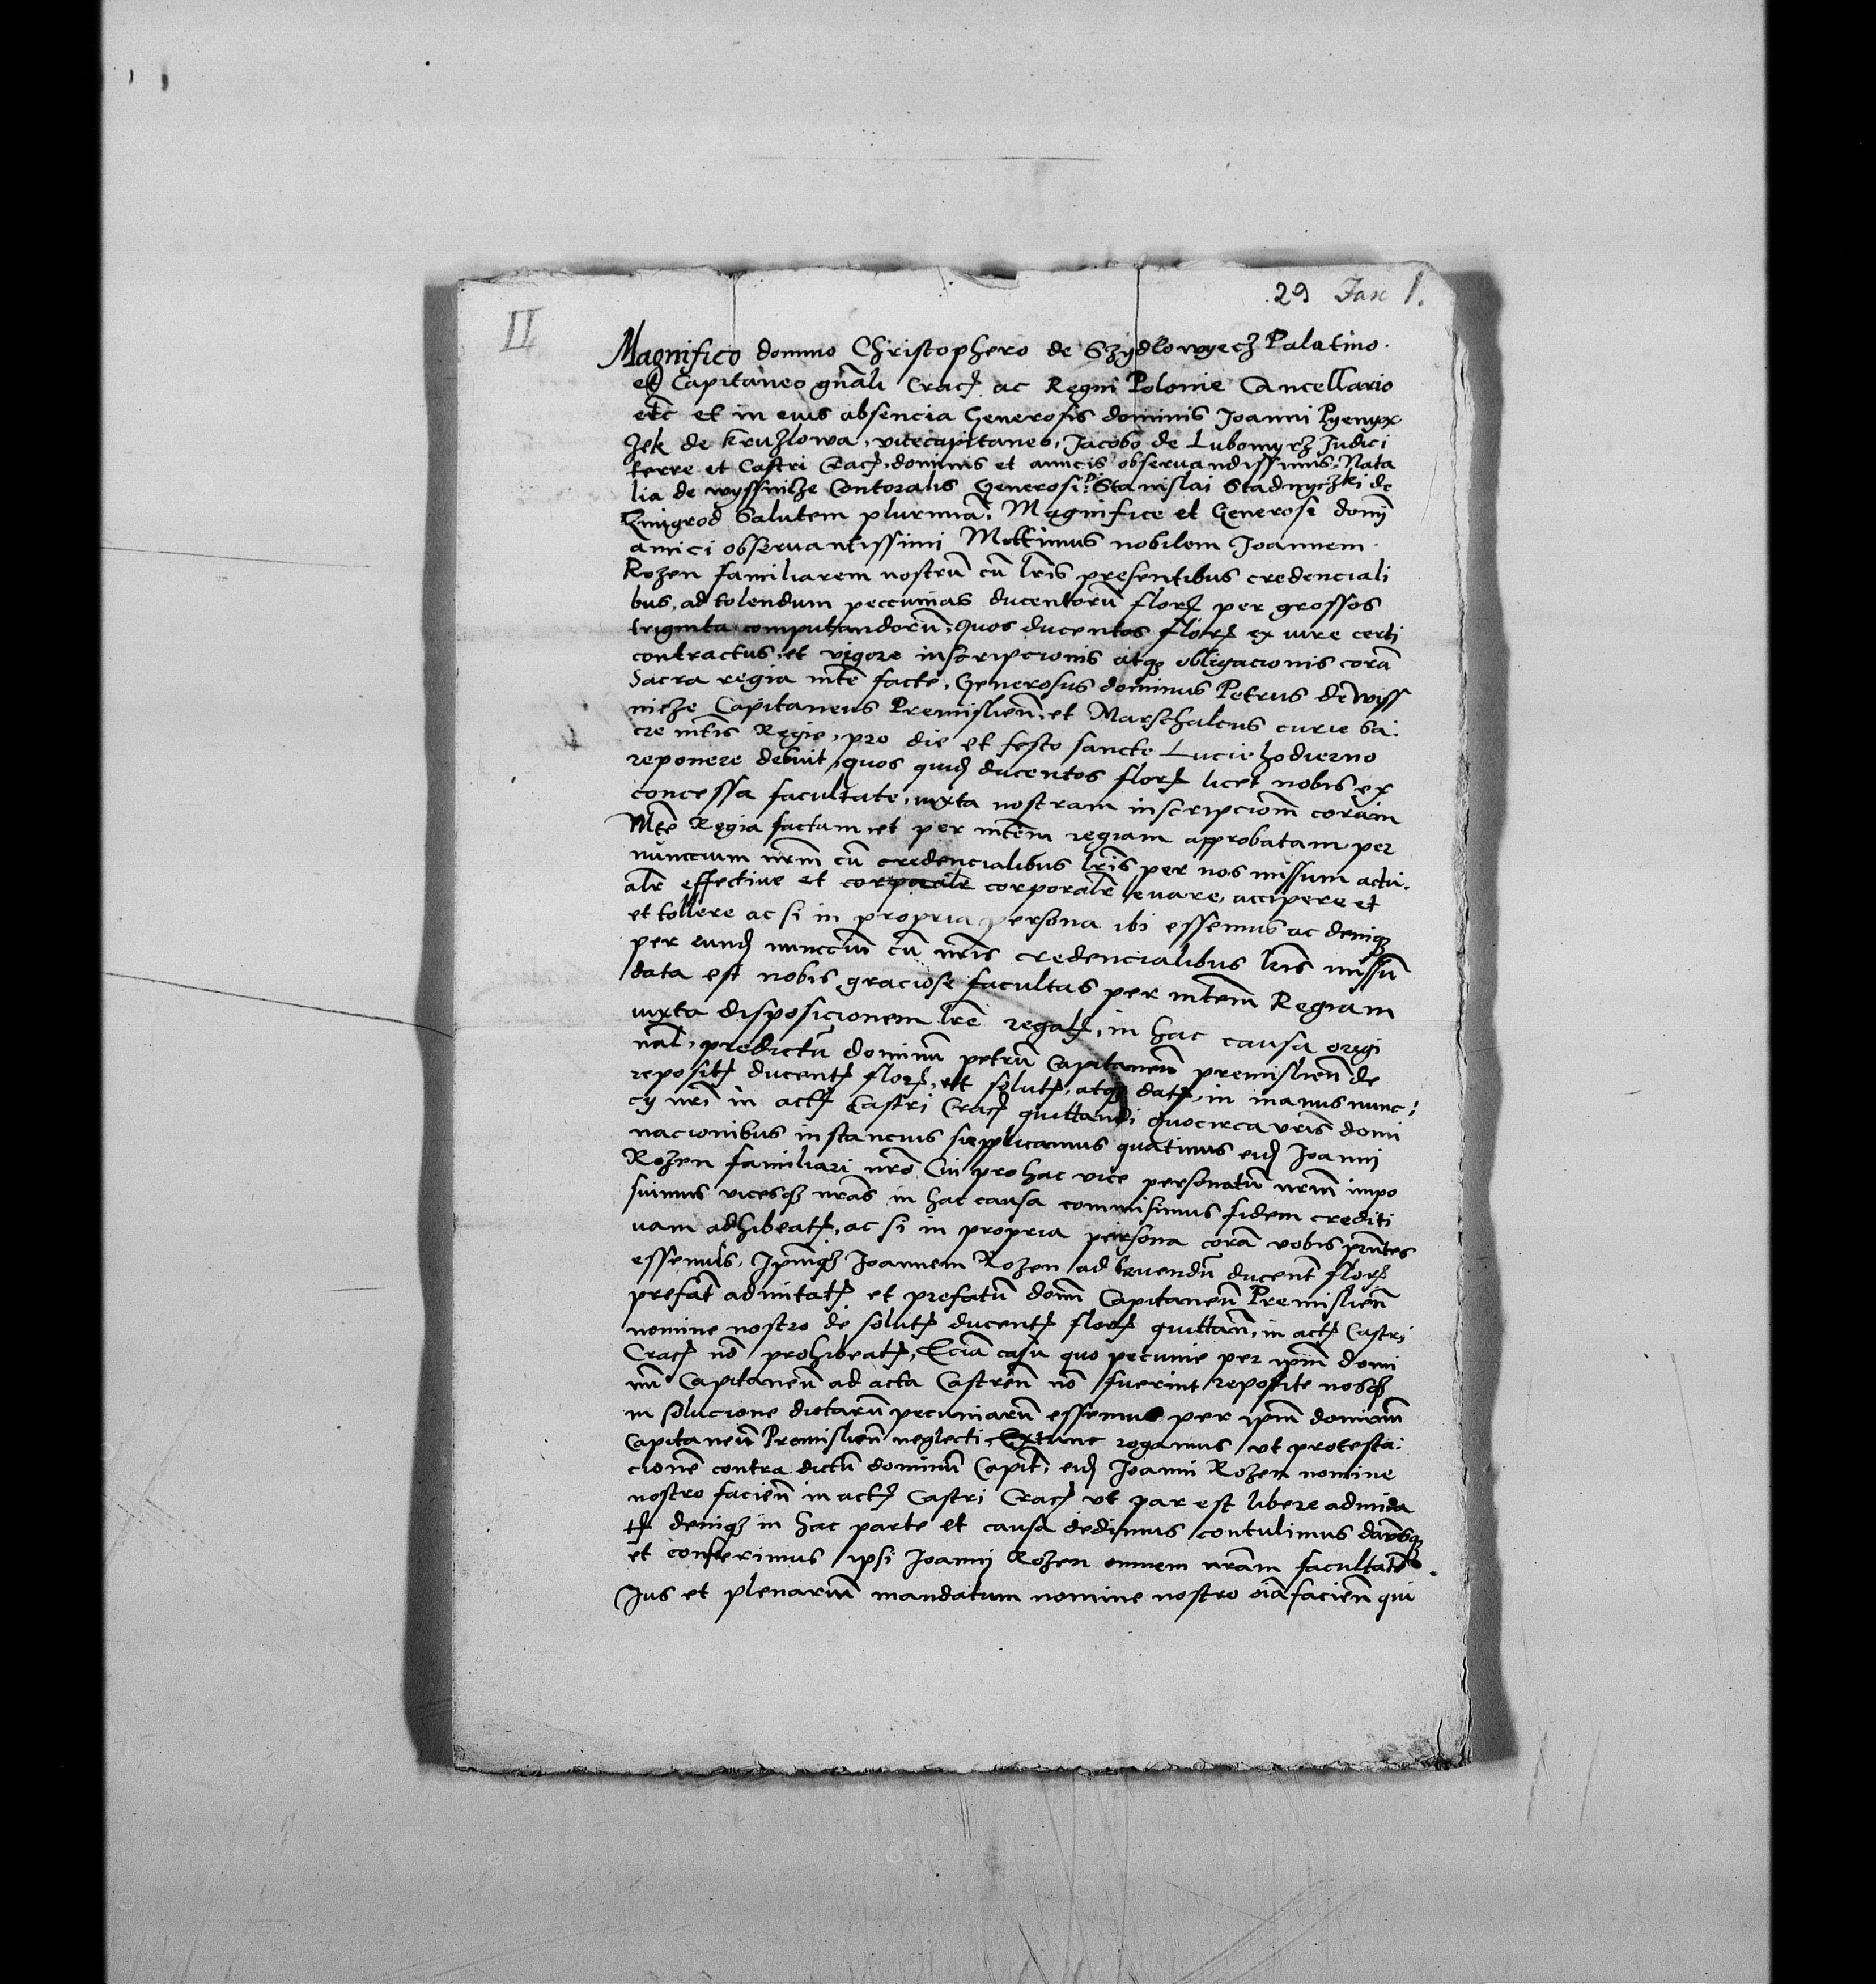 II
29 Fasc 1.
Magnifico domino Christophero de Szydlowyecz Palatino
et Capitaneo gnãli Crac̃ ac Regni Polonie Cancellario
etc̃ et in eius absencia Generosis dominis Joanni Pyenyx
zek de kruzlowa, vicecapitaneo, Jacobo de Lubomyrz Judici
terre et Castri Crac̃, dominis et amicis observandissimis, Nata
lia de wyssnicze Contoralis Generosi D. Stanislai Stadnyczki de
Zmigrod Salutem plurimã, Magnifice et Generose domj̃
amici observantissimi Mittimus nobilem Joannem
Rozen familiarem nostrũ cũ lr̃is presentibus credenciali
bus, ad tolendum peccunias ducentorũ flor̃ per grossos
triginta computandorũ, quos ducentos flor̃ ex iure certi
contractus, et vigore inscripcionis atqʒ obligacionis corã
Sacra regia mte̅ facte, Generosus dominus Petrus de wiss
nicze Capitaneus Premislien̄, et Marschalcus curie Sa:
cre mtĩs Regie, pro die et festo sancte Lucie hodierno
reponere debuit, quos quid̃ ducentos flor̃ licet nobis ex
concessa facultate, iuxta nostram inscripciom̃ coram
Mte̅ Regia factam et per mtem̃ regiam approbatam per
nunccium nrm̃ cũ credencialibus lr̃is per nos missum actu
alr̃ effective et corporalr̃ corporalr̃ levare, accipere et
et tollere ac si in propria persona ibi essemus ac deniqʒ
per eund̃ nunccium cũ nrĩs credencialibus lr̃is missũ
data est nobis graciose facultas per mtem̃ Regiam
iuxta disposicionem lrẽ regal̃, in hac causa origi
nal̃, predictũ dominũ petrũ Capitaneũ premislien̄ de
reposit̃ ducent̃ flor̃, et solut̃, atqʒ dat̃, in manus nunc:
cy nrĩ in act̃ Castri Crac̃ quittandi quocirca vrĩs domi
nacionibus instancius supplicamus quatinus eid̃ Joannj
Rozen familiari nrõ Cui pro hac vice personatũ nrm̃ impo
suimus vicesqʒ nrãs in hac causa commisimus fidem crediti
vam adhibeat̃, ac si in propria persona corã vobis pr̃ntes
essemus, Ipm̃qʒ Joannem Rozen ad levendũ ducent̃ flor̃
prefat̃ admitat̃ et prefatũ dom̃ Capitaneũ Premislien̄
nomine nostro de solut̃ ducent̃ flor̃ quittan̄, in act̃ Castri
Crac̃ nõ prohibeat̃, Eciã casu quo pecunie per ipm̃ domi
nũ Capitaneũ ad acta Castren̄ nõ fuerint reposite nosqʒ
in solucione dictarũ pecuniarũ essemus per ipm̃ dominũ
Capitaneũ Premislien̄ neglecti Extunc rogamus ut protesta:
cionẽ contra dictũ dominũ Capit̃, eid̃ Joanni Rozen nomine
nostro facien̄ in act̃ Castri Crac̃ ut par est libere admita
t̃ deniqʒ in hac parte et causa dedimus contulimus damusqʒ
et conferimus ipsi Joannj Rozen omnem nrãm facultatẽ
Jus et plenariũ mandatum nomine nostro oĩa facien̄ qui